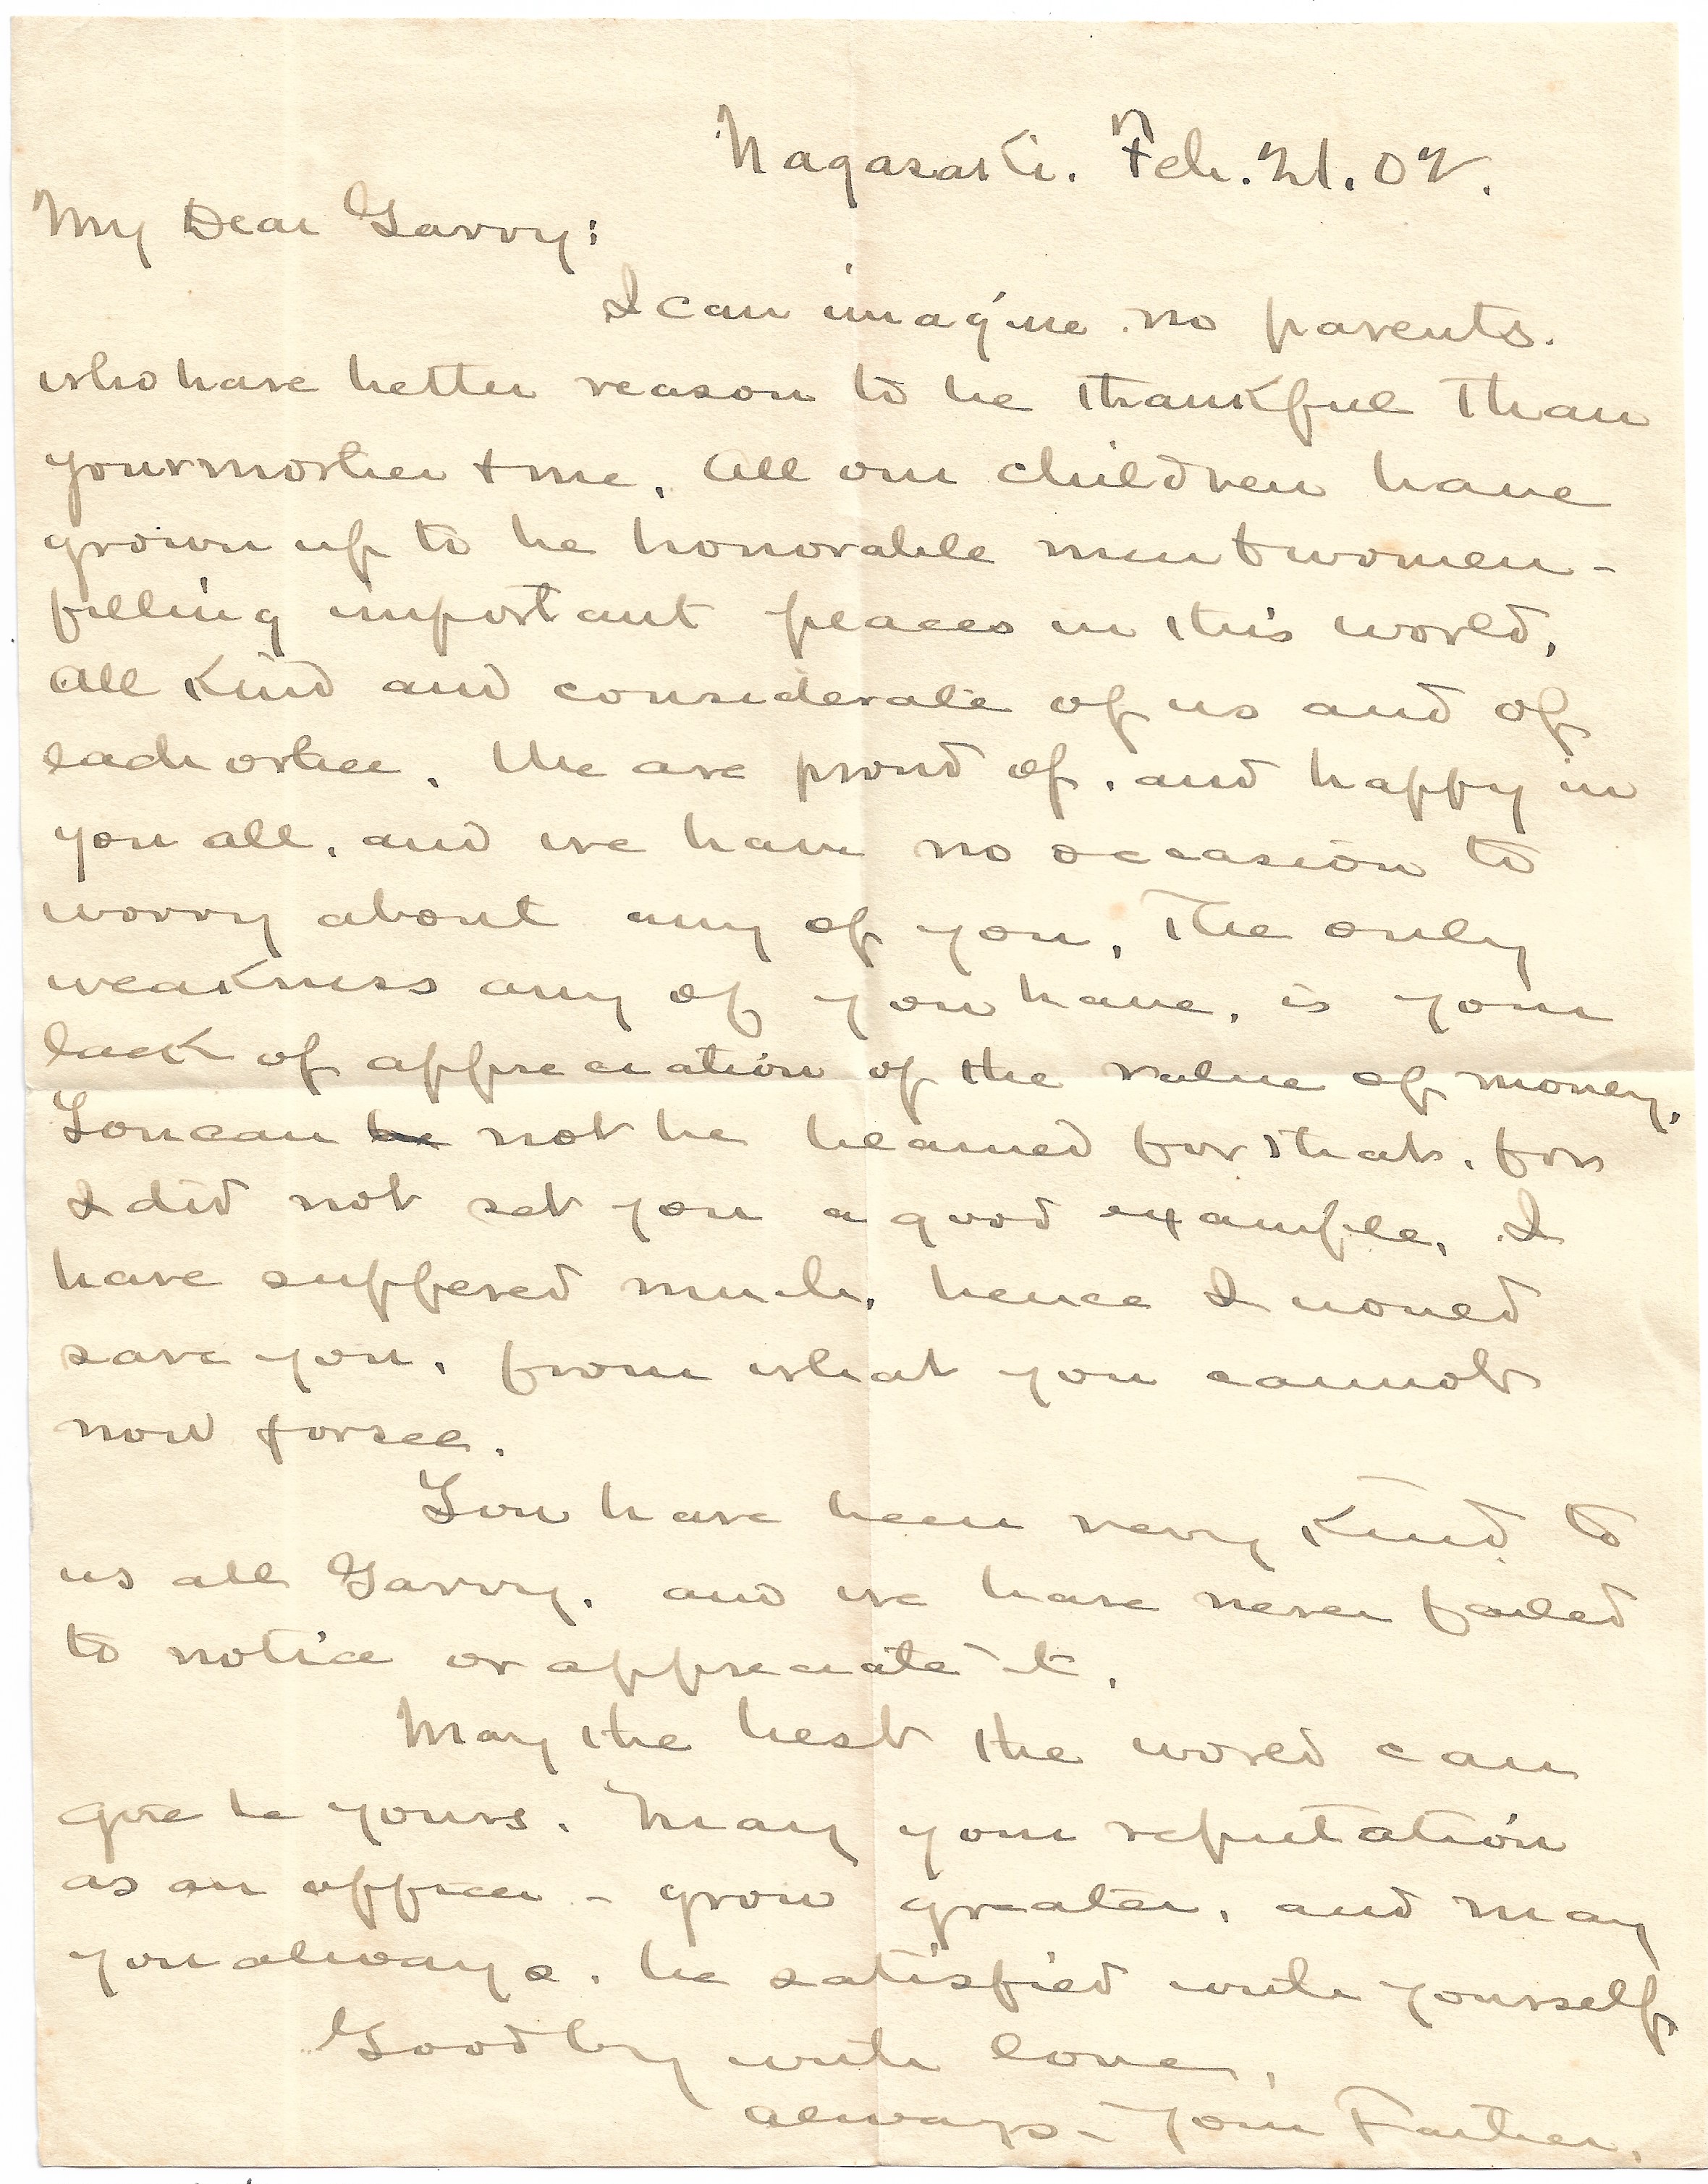 Nagasaki. Feb. 21. 02.
My Dear Garry:
I can imagine no parents.
who have better reason to be thankful than
your mother + me. All our children have
grown up to be honorable men + women -
filling important places in this world.
All kind and considerate of us and of
each other. We are proud of, and happy in
you all, and we have no occasion to
worry about any of you. The only
weakness any of you have, is your
lack of appreciation of the value of money.
You can be not be blamed for that, for
I did not set you a good example. I
have suffered much, hence I would
save you, from what you cannot
now forsee.
You have been very kind to
us all Garry, and we have never failed
to notice or appreciate it.
May the best the world can
give be yours. May your reputation
as an officer - grow greater, and may
you always, be satisfied with yourself,
Goodby with love,
always - Your Father.